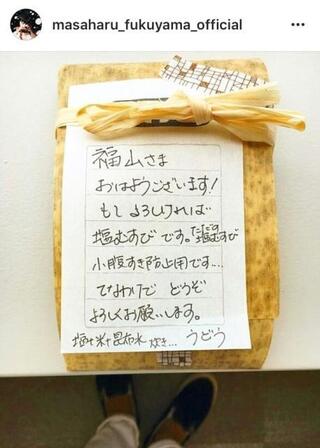 masaharu_fukuyama_official
福山さま
おはようございます!
もしよろしければ
塩むすびです。ただの塩むすび
小腹すき防止用です…
ひみわけで どうぞ
よろしくお願いします。
塩+米+昆布水 炊き… うどう